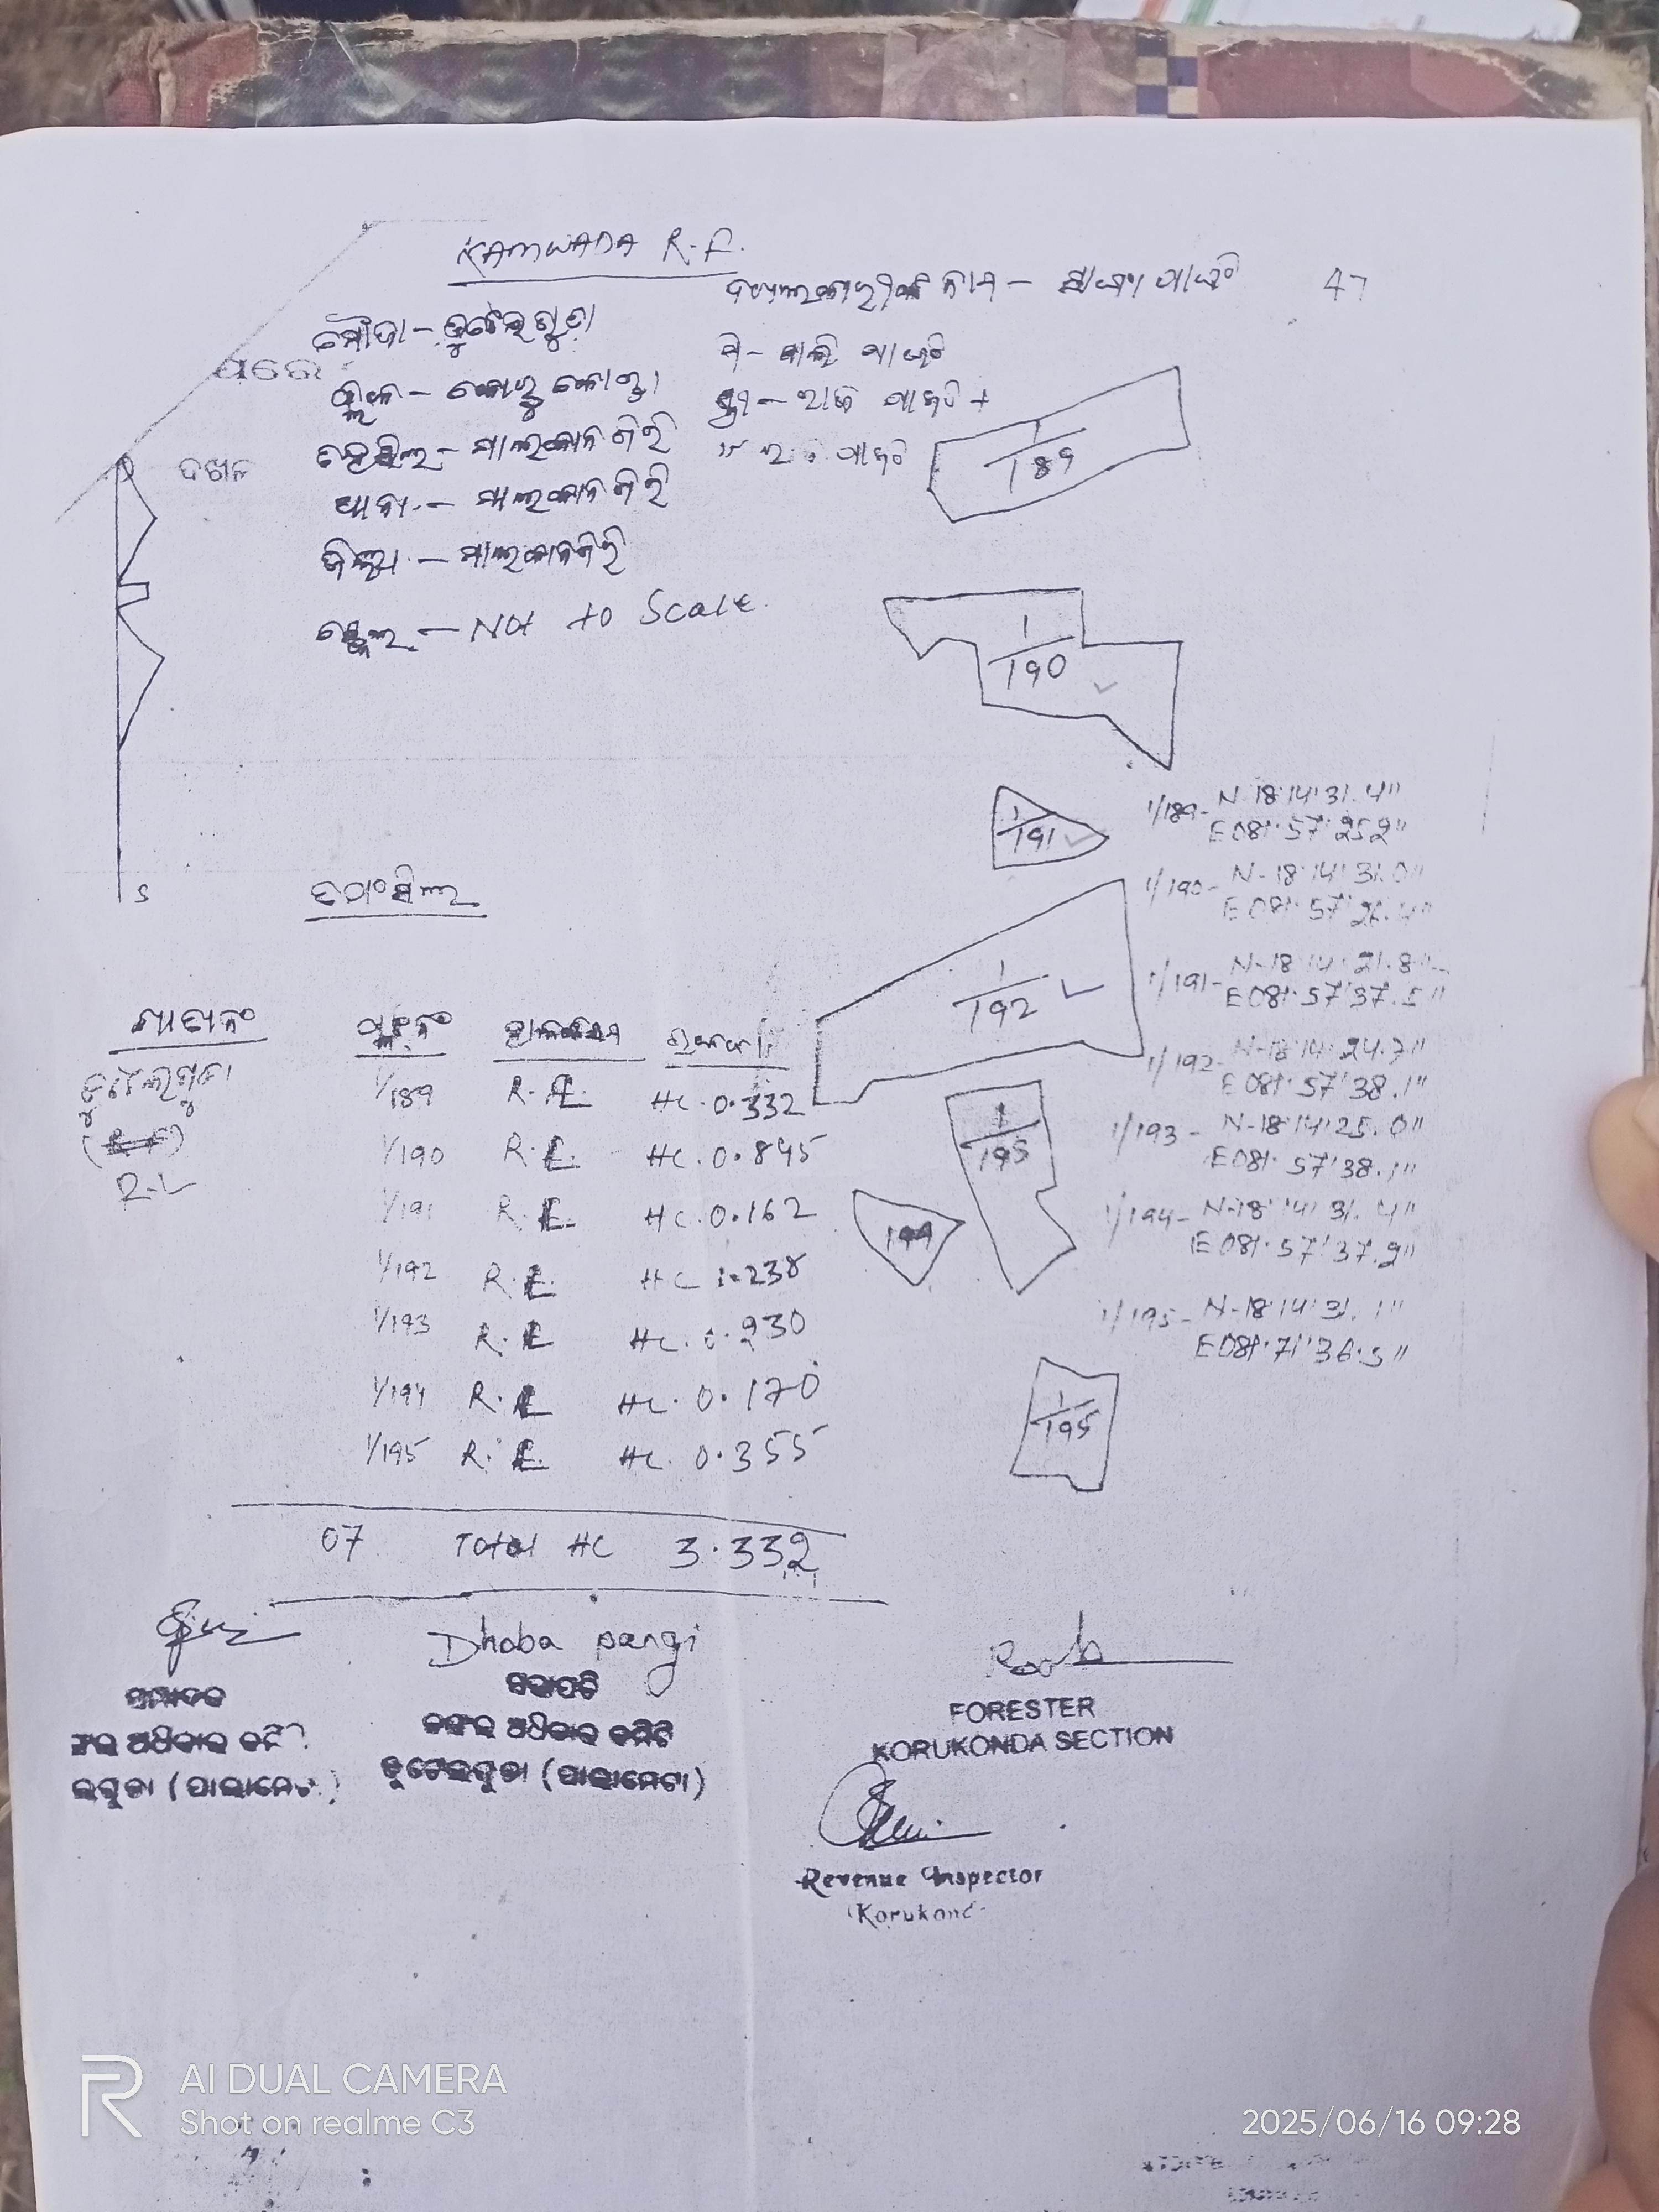 KAMWADA R.F.
ଦଖଲକାରୀଙ୍କ ନାମ - ପାଙ୍ଗି
47
ମୌଜା - ଡୁଟେଲଗୁଡା
ପରେ
ବ୍ଲକ - କୋରୁକୋଣ୍ଡା
ତହସିଲ - ମାଲକାନଗିରି
ଦଖଲ
ଥାନା - ମାଲକାନଗିରି
ଜିଲ୍ଲା - ମାଲକାନଗିରି
ସ୍କେଲ - Not to Scale
1/189
1/190
1/191
1/192
1/193
194
1/195
1/189- N-18°14'31.4"
E 081°57'25.2"
1/190- N-18°14'31.0"
E 081°57'
1/191- N-18°14'21.8"
E 081°57'37.5"
1/192- N-18°14'24.7"
E 081°57'38.1"
1/193 - N-18°14'25.0"
E 081°57'38.1"
1/194- N-18°14'31.4"
E 081°57'37.9"
1/195- N-18°14'31.1"
E 081°71'36.5"
S
ତପସିଲ
ଖାତା ନଂ ପ୍ଲଟ ନଂ ରକବା
ଡୁଟେଲଗୁଡା 1/189 R.F. HC. 0.332
1/190 R.F. HC. 0.845
1/191 R.F. HC. 0.162
1/192 R.F. HC 1.238
1/193 R.F. HC. 0.230
1/194 R.F. HC. 0.170
1/195 R.F. HC. 0.355
07 Total HC 3.332
Dhoba pangi
ସମ୍ପାଦକ
ଙ୍ଗଲ ଅଧିକାର କମିଟି
ଲଗୁଡା (ପାଲାମେଟା)
ସଭାପତି
ଜଙ୍ଗଲ ଅଧିକାର କମିଟି
ଡୁଟେଲଗୁଡା (ପାଲାମେଟା)
FORESTER
KORUKONDA SECTION
Revenue Inspector
Korukond
AI DUAL CAMERA
Shot on realme C3
2025/06/16 09:28